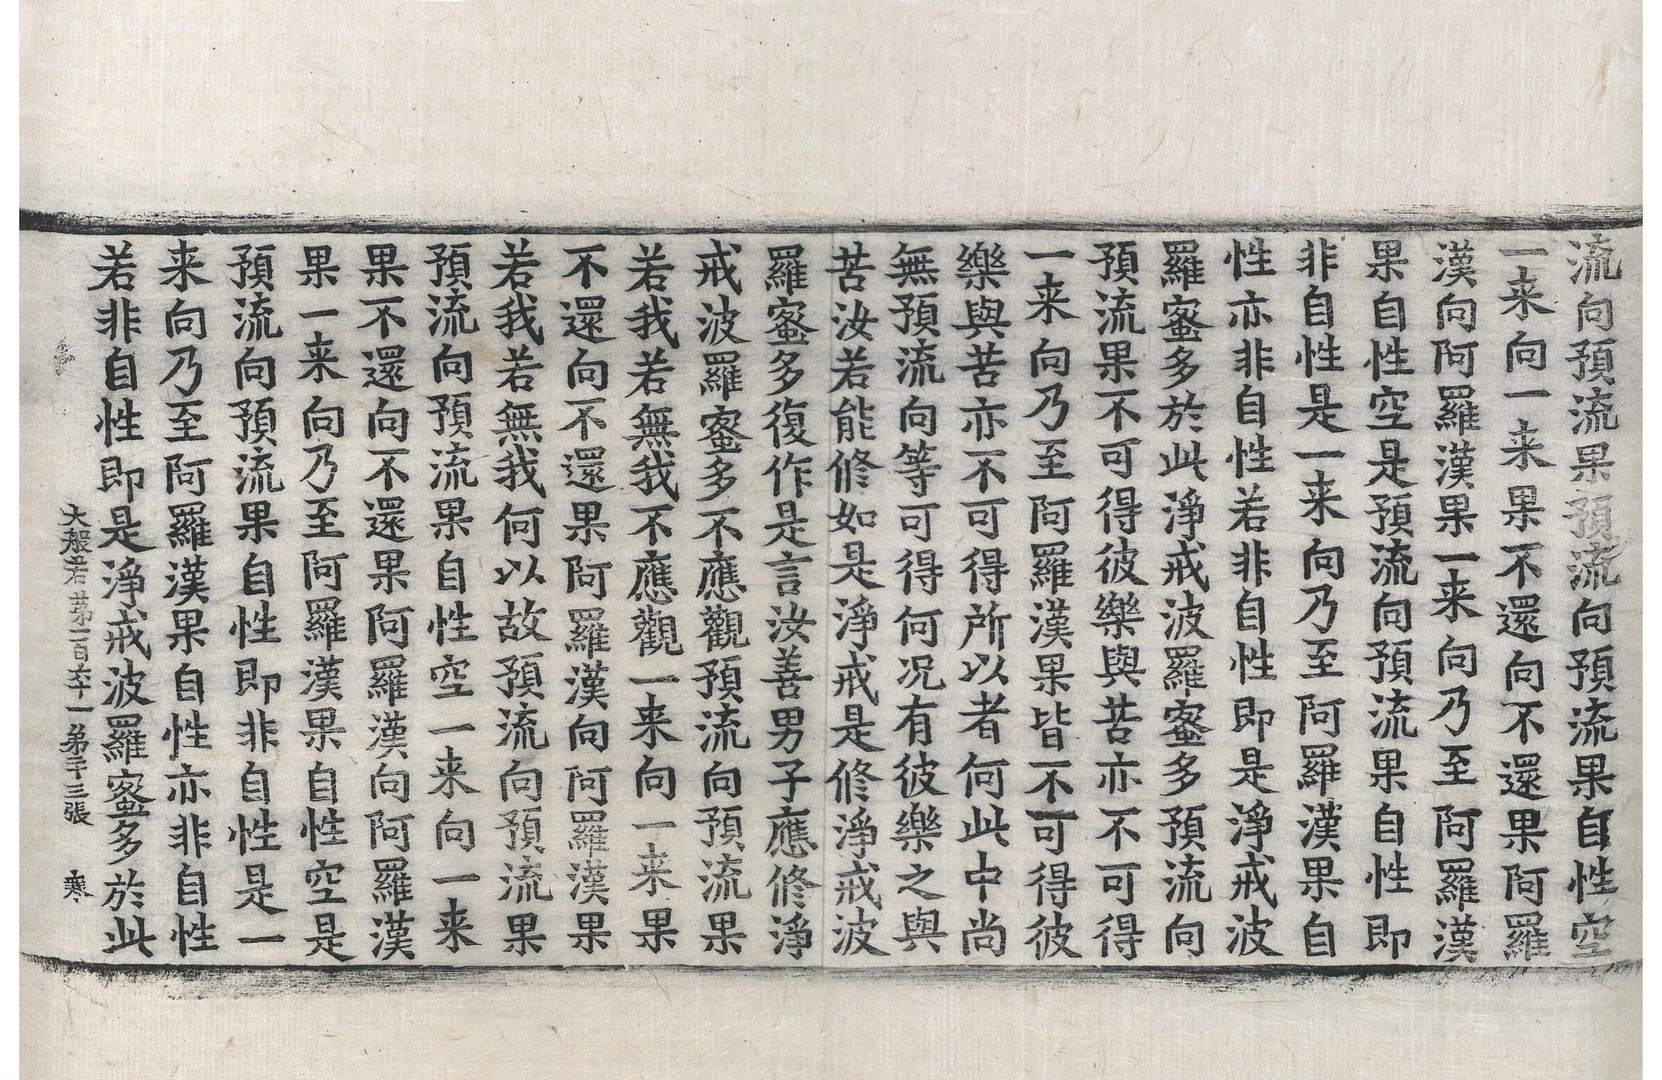 流向預流果預流向預流果自性空
一来向一来果不還向不還果阿羅
漢向阿羅漢果一来向乃至阿羅漢
果自性空是預流向預流果自性即
非自性是一来向乃至阿羅漢果自
性亦非自性若非自性即是淨戒波
羅蜜多於此淨戒波羅蜜多預流向
預流果不可得彼樂與苦亦不可得
一来向乃至阿羅漢果皆不可得彼
樂與苦亦不可得所以者何此中尚
無預流向等可得何况有彼樂之與
苦汝若能修如是淨戒是修淨戒波
羅蜜多復作是言汝善男子應修淨
戒波羅蜜多不應觀預流向預流果
若我若無我不應觀一来向一来果
不還向不還果阿羅漢向阿羅漢果
若我若無我何以故預流向預流果
預流向預流果自性空一来向一来
果不還向不還果阿羅漢向阿羅漢
果一来向乃至阿羅漢果自性空是
預流向預流果自性即非自性是一
来向乃至阿羅漢果自性亦非自性
若非自性即是淨戒波羅蜜多於此
大般若第一百六十一 第二十三張 寒